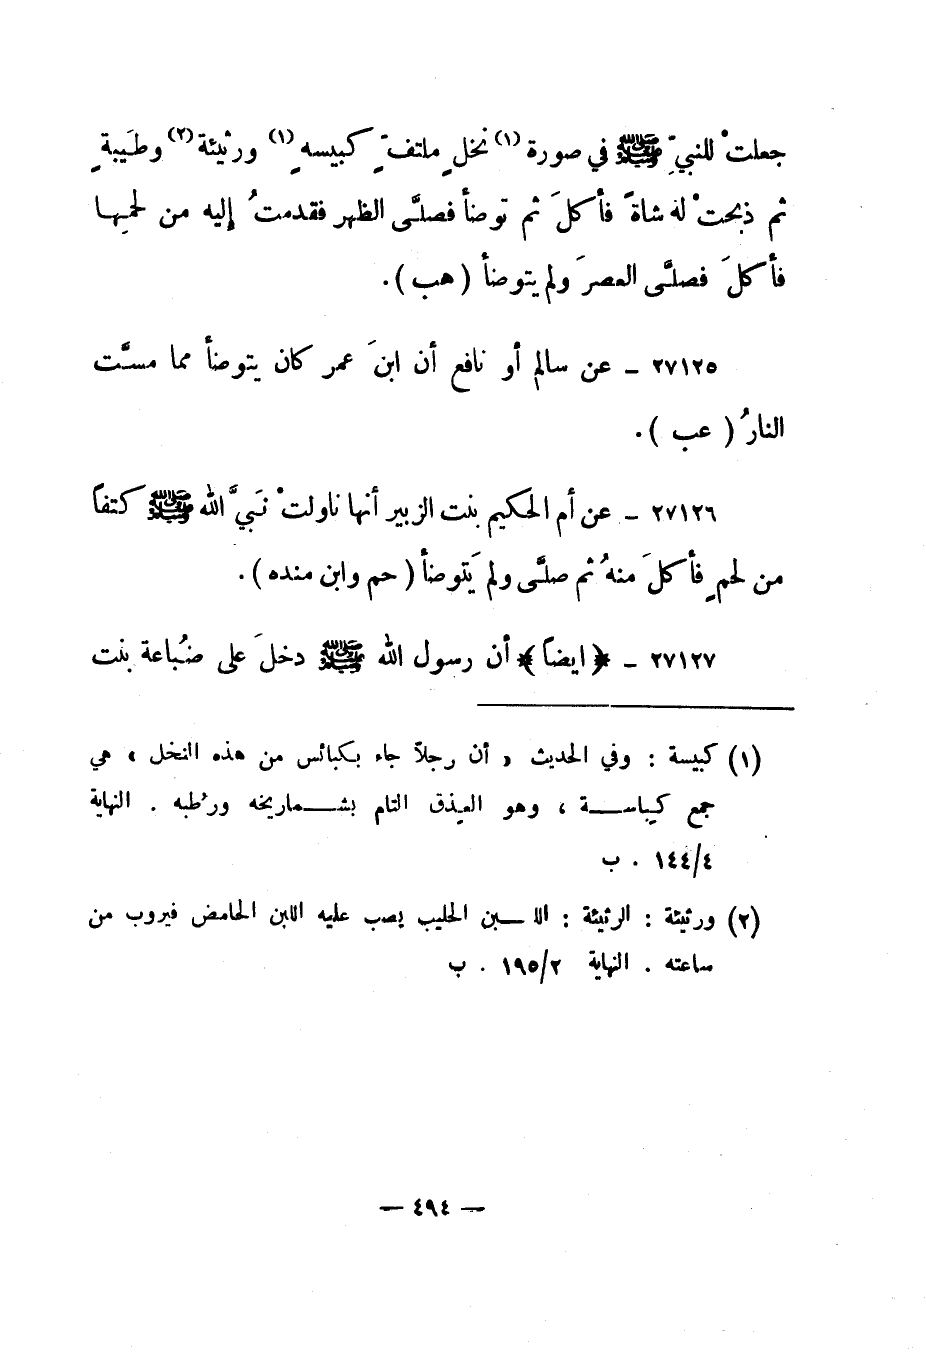 جعلتْ للنبيِّ ﷺ في صورة (١) نخلٍ ملتفٍّ كبيسهٍ (١) ورثيئة (٢) وطَيبةٍ
ثم ذبحتْ له شاةً فأكلَ ثم توضأ فصلَّى الظهر فقدمتُ إليه من لحمِها
فأكلَ فصلَّى العصرَ ولم يتوضأ ( هب ) .
٢٧١٢٥ ـ عن سالم أو نافع أن ابنَ عمر كان يتوضأ مما مسَّت
النارُ ( عب ) .
٢٧١٢٦ ـ عن أم الحكيم بنت الزبير أنها ناولتْ نَبيَّ الله ﷺ كتفاً
من لحمٍ فأكلَ منهُ ثم صلَّى ولم يَتوضأ ( حم وابن منده ) .
٢٧١٢٧ ـ ﴿ ايضاً ﴾ أن رسول الله ﷺ دخلَ على ضُباعة بنت
(١) كبيسة : وفي الحديث « أن رجلاً جاء بكبائس من هذه النخل » هي
جمع كِباســة ، وهو العِذق التام بشـماريخه ورُطبه . النهاية
١٤٤/٤ . ب
(٢) ورثيئة : الرثيئة : اللـبن الحليب يصب عليه اللبن الحامض فيروب من
ساعته . النهاية ١٩٥/٢ . ب
— ٤٩٤ —